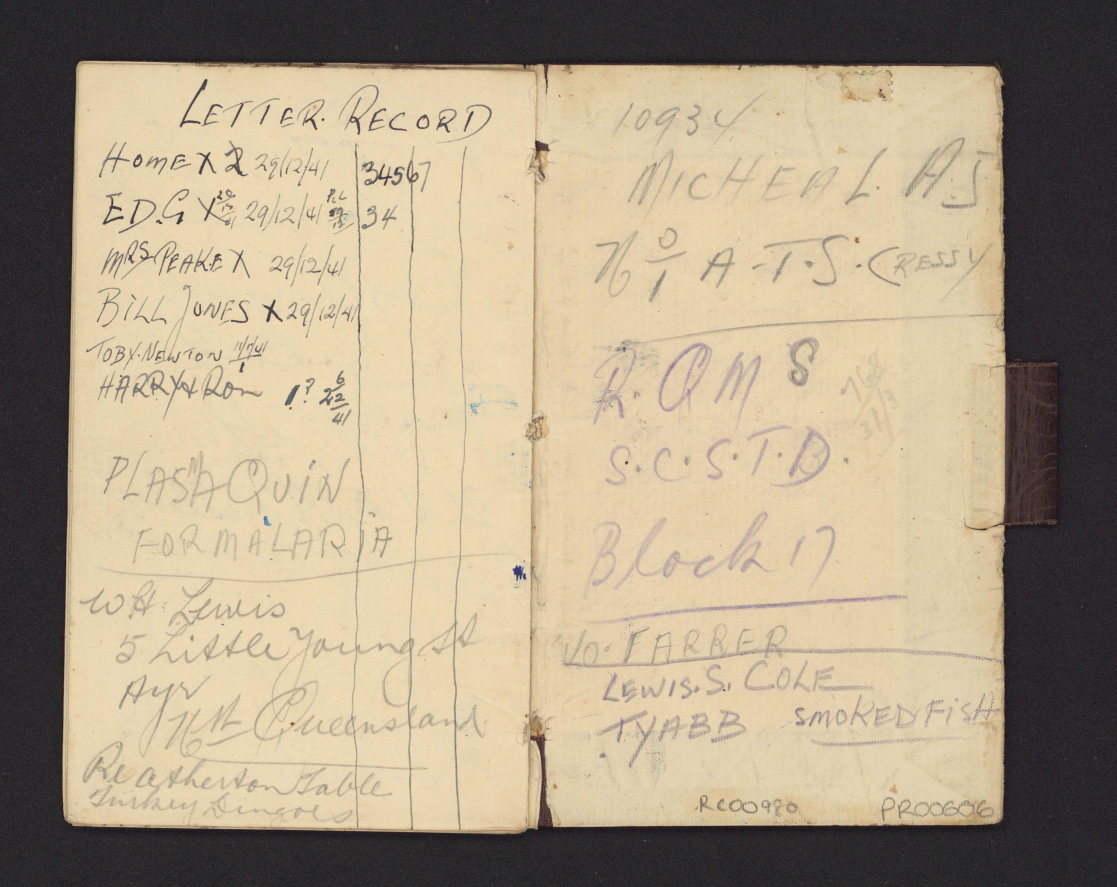 LETTER. RECORD
HOME X 2 29/12/41 34567
ED.G X 29/12/41 34
MRS PEAKE X 29/12/41
BILL JONES X 29/12/41
TOBY. NEWTON
HARRY & RON 1?
PLASMAQUIN
FOR MALARIA
W H. Lewis
5 Little Young St
Ayr
Nth Queensland
Re atherton Table
Turkey Dingoes
10934
MICHEAL. A.J
No 1 A.T.S. CRESSY
R. Q M S
S.C.S.T.D.
Block 17
FARRER
LEWIS. S. COLE
TYABB SMOKED FISH
RC00980 PR00606